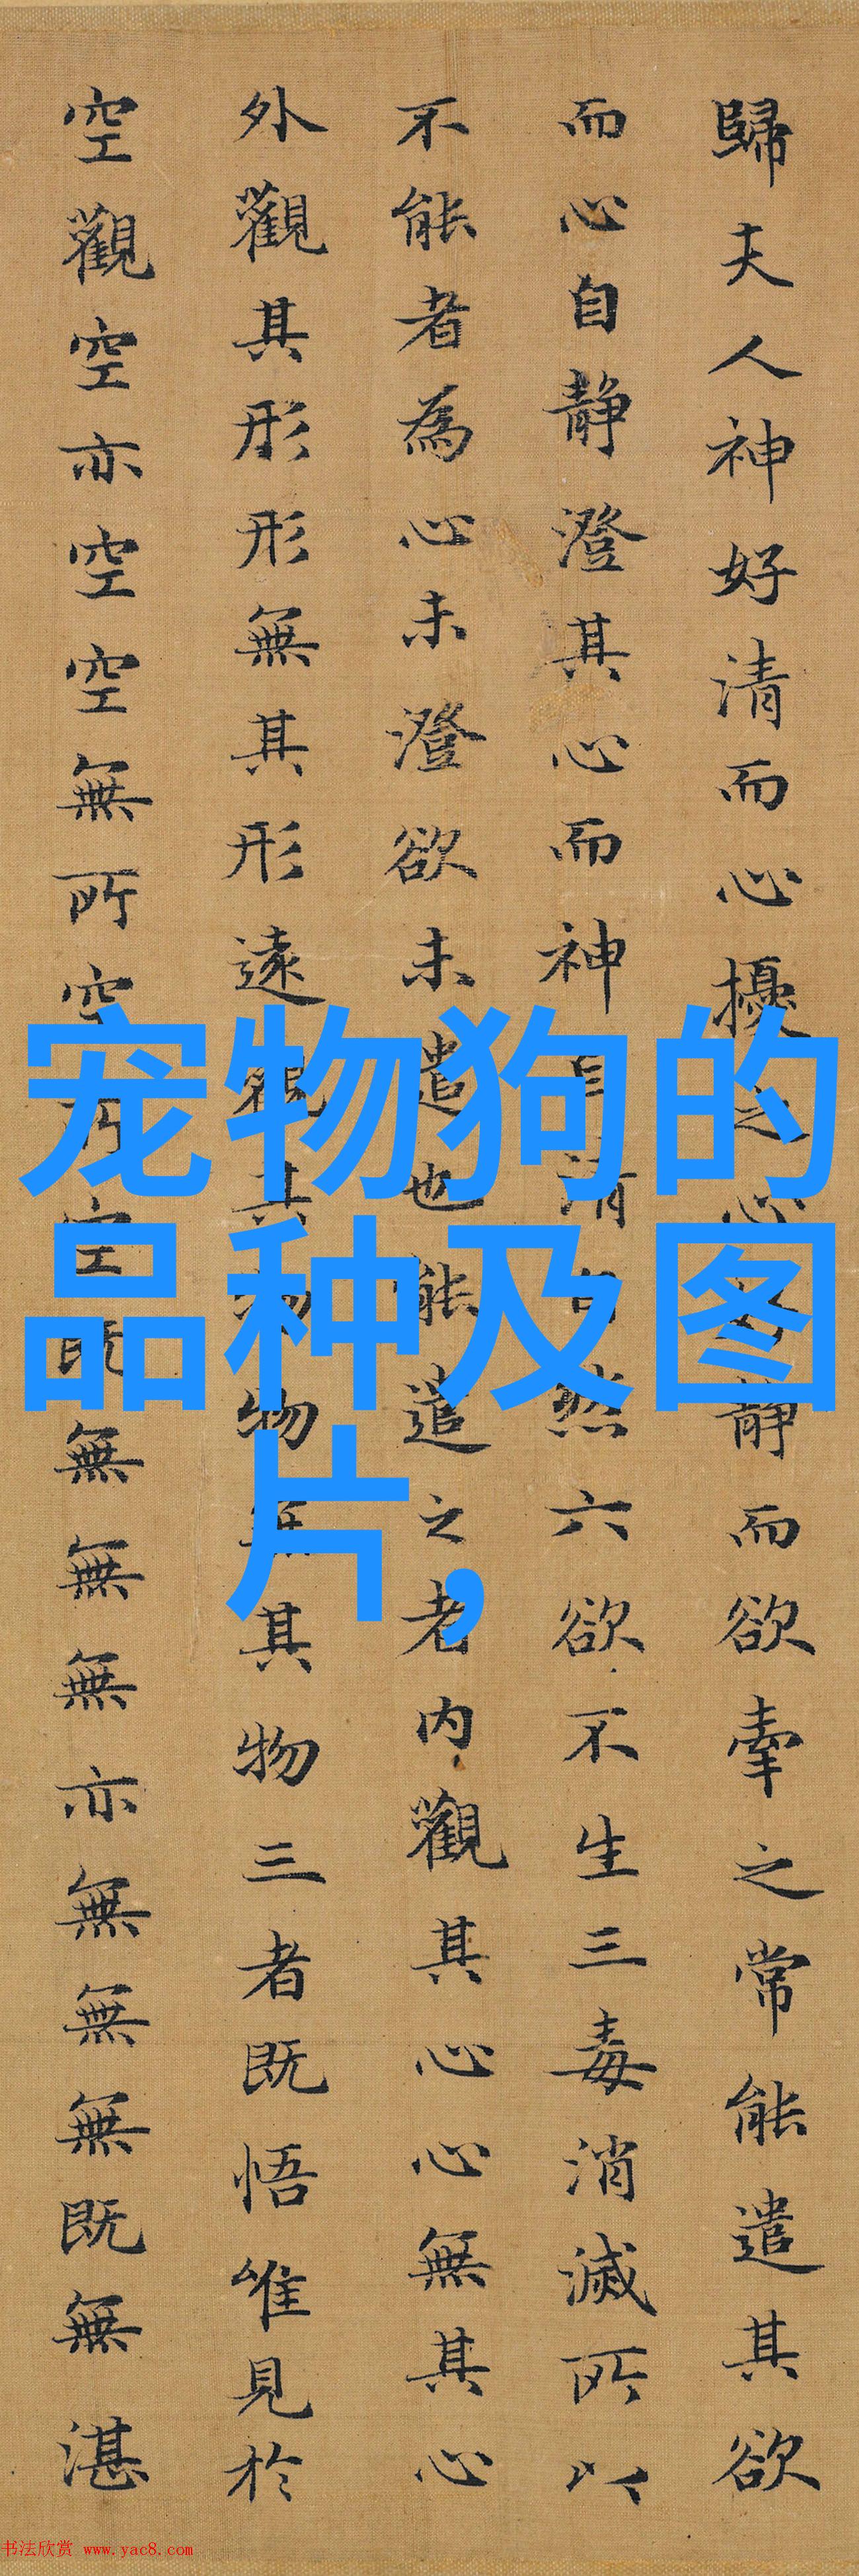 歸夫人神好清而心擾之心好静而欲牽之常能遣其欲
而心自静澄其心而神自清自然六欲不生三毒消滅所以
不能者為心未澄欲未遣也能遣之者内觀其心心無其心
外觀其形形無其形遠觀其物物無其物三者既悟唯見於
空觀空亦空空無所空所空既無無無亦無無無既無湛
宠物狗的
品种及图
片,
书法欣赏 www.yac8.com